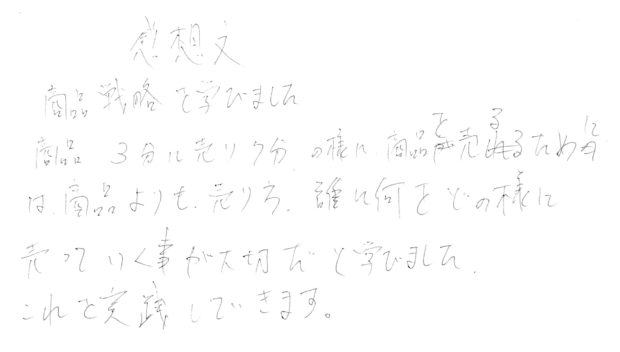 感想文
商品戦略を学びました
商品 3分に売り7分 の様に 商品を売るために
は、商品よりも、売り方、誰に何をどの様に
売っていく事が大切だと学びました。
これを実践していきます。